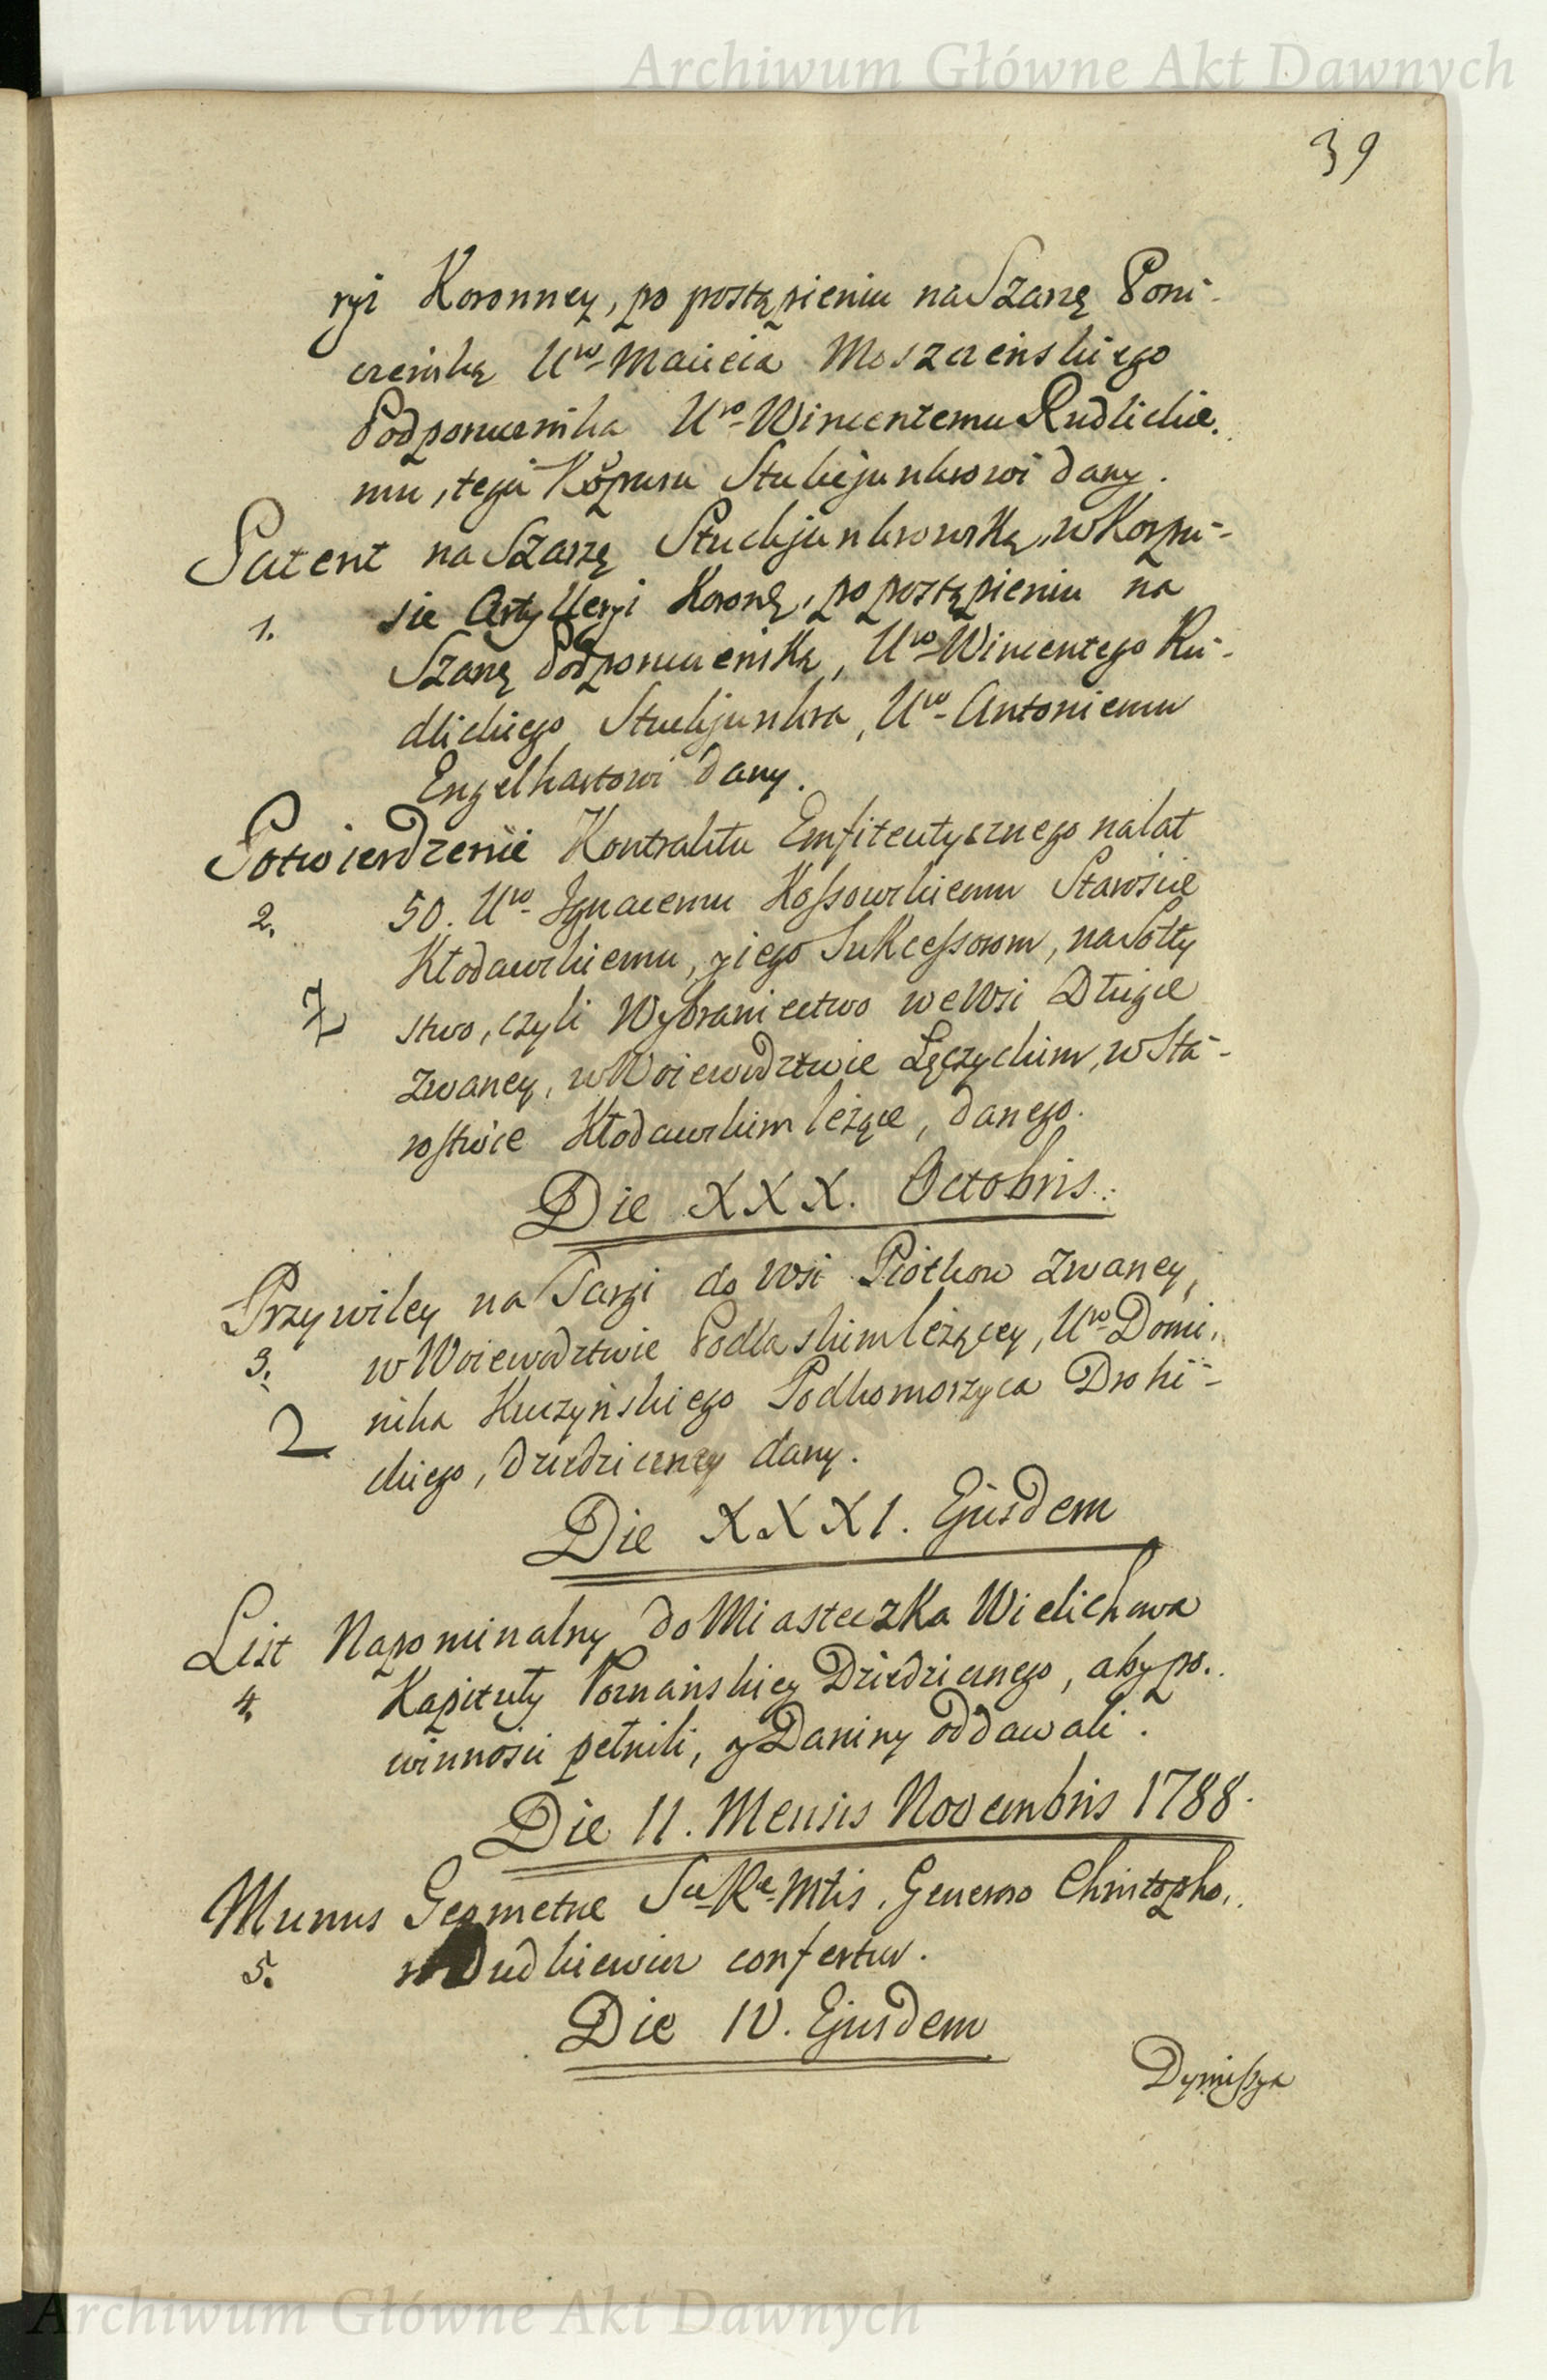 Archiwum Główne Akt Dawnych
39
ryi Koronney, po postąpieniu na Szarżę Poru-
cznikską Uro Macieia Moszczeńskiego
Podporucznika Uro Wincentemu Rudlickie-
mu, tegoż Korpusu Stuckjunkrowi dany.
Patent na Szarżę Stuckjunkrowską, w Korpu-
1. sie Artylleryi Koronę, po postąpieniu na
Szarżę Podporucznikską, Uro Wincentego Ru-
dlickiego Stuckjunkra, Uro Antoniemu
Engelhartowi dany.
Potwierdzenie Kontraktu Emfiteutycznego na lat
2. 50. Uro Ignacemu Kossowskiemu Staroście
Kłodawskiemu, y iego Sukcessorom, na Sołty
stwo, czyli Wybraniectwo we Wsi Długie
zwaney, w Woiewodztwie Łęczyckim, w Sta-
rostwie Kłodawskim leżące, danego.
Die XXX. Octobris.
Przywiley na Targi do Wsi Piotkow zwaney,
3. w Woiewodztwie Podlaskim leżącey, Uro Domi-
nika Kuczyńskiego Podkomorzyca Drohi-
ckiego, dziedziczney dany.
Die XXXI. Ejusdem
List Napominalny do Miasteczka Wielichowa
4. Kapituły Poznańskiey Dziedzicznego, aby po-
winności pełnili, y Daniny oddawali.
Die II. Mensis Novembris 1788.
Munus Geometrae Sae Rae Mtis. Generoso Christopho-
5. ro Dudkiewicz confertur.
Die IV. Ejusdem
Dymissya
Archiwum Główne Akt Dawnych